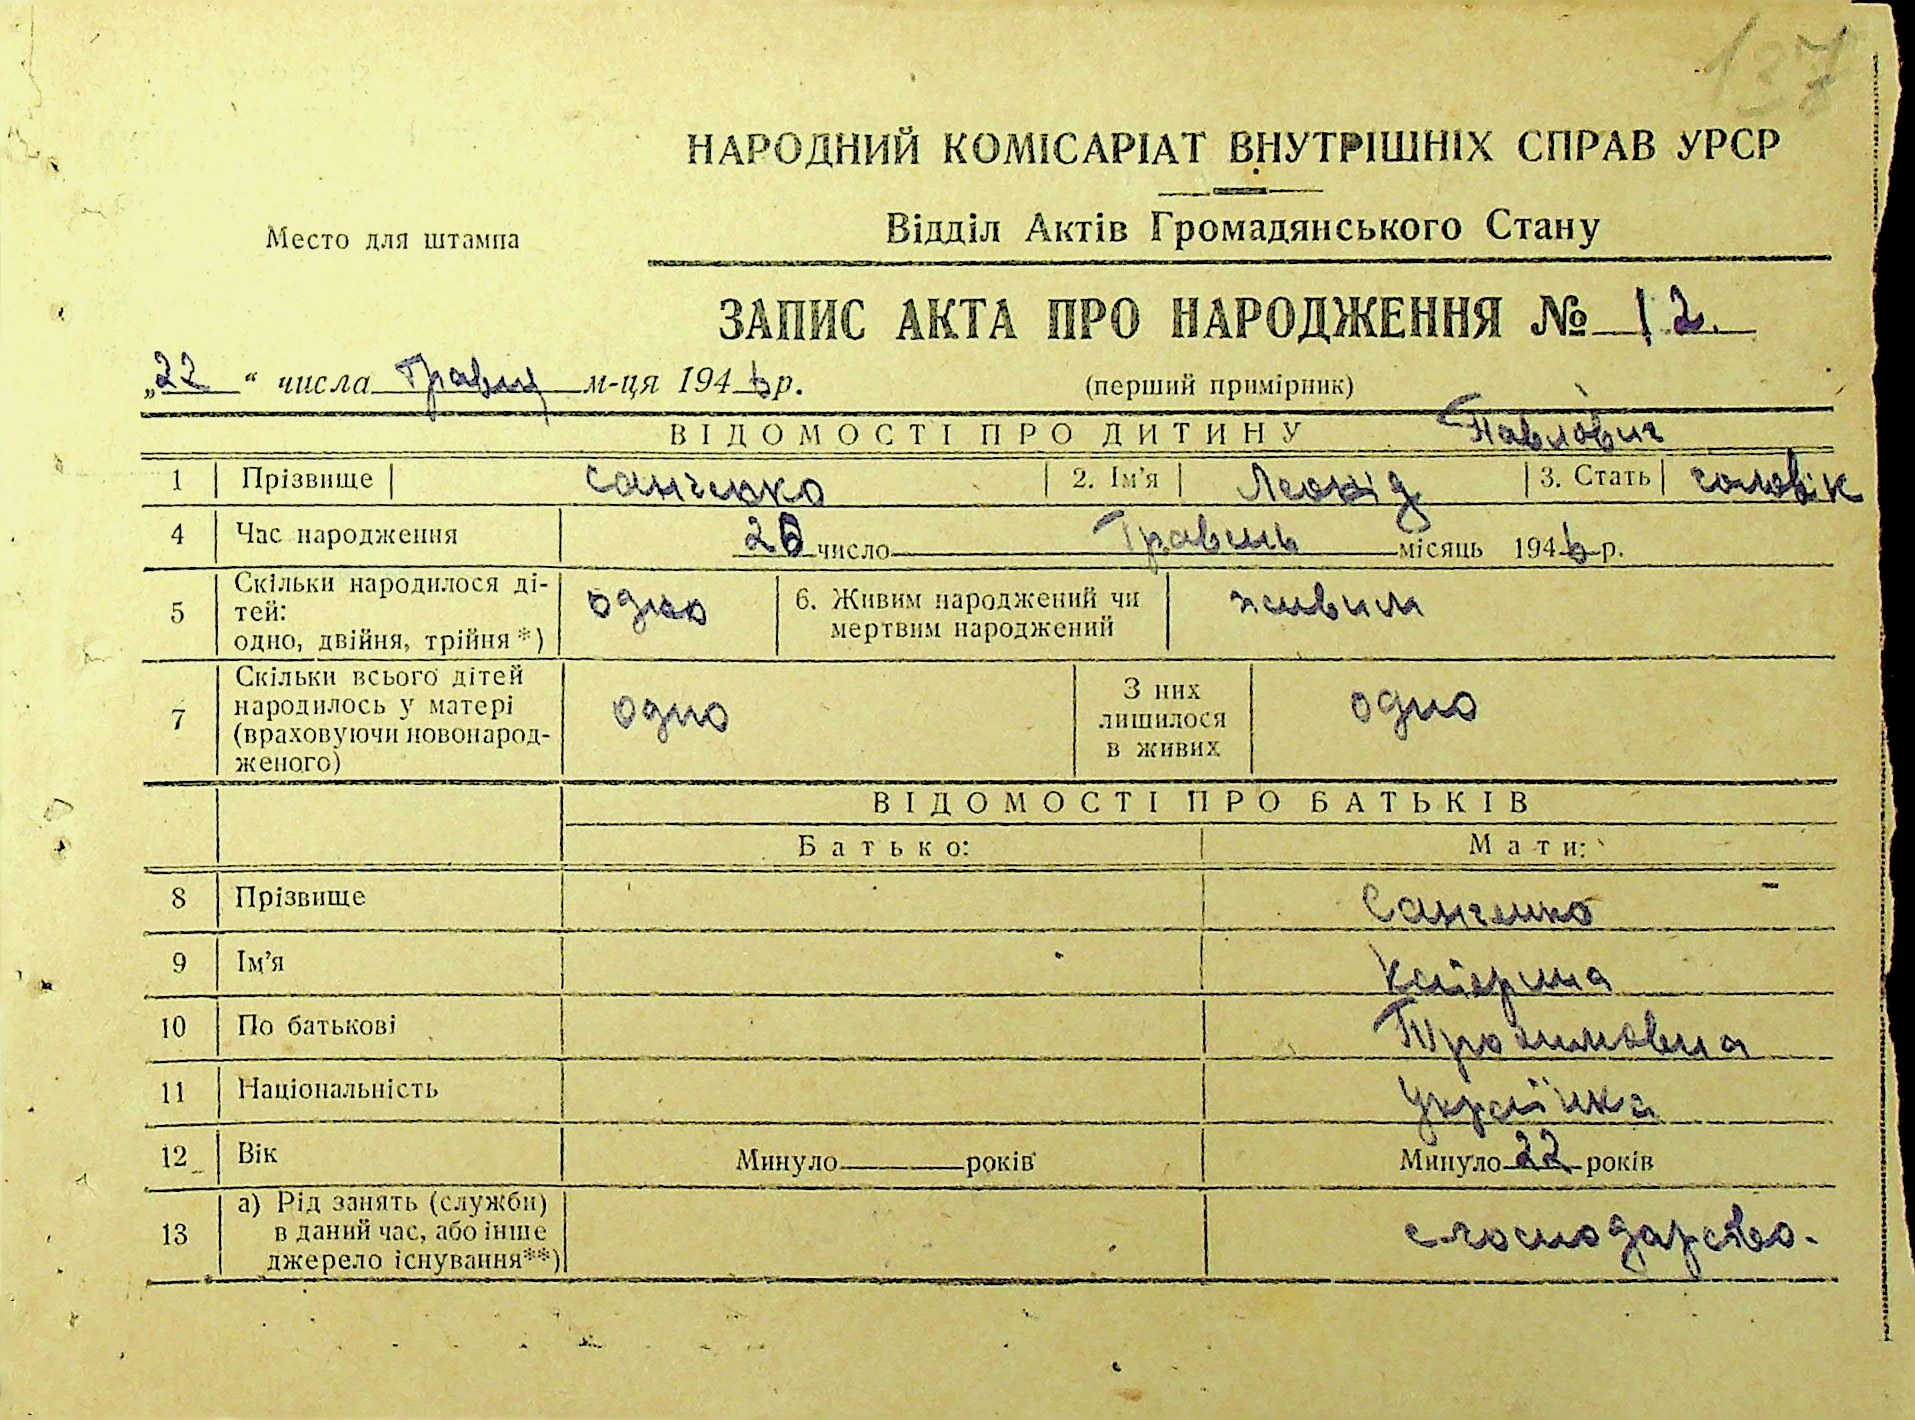 137
НАРОДНИЙ КОМІСАРІАТ ВНУТРІШНІХ СПРАВ УРСР
Место для штампа
Відділ Актів Громадянського Стану
ЗАПИС АКТА ПРО НАРОДЖЕННЯ № 12.
„22“ числа Травня м-ця 1946 р. (перший примірник)
ВІДОМОСТІ ПРО ДИТИНУ Павлович
1 Прізвище Санченко 2. Ім'я Леонід 3. Стать чоловік
4 Час народження 20 число Травень місяць 1946 р.
5 Скільки народилося ді-
тей:
одно, двійня, трійня *) одно 6. Живим народжений чи
мертвим народжений живим
7 Скільки всього дітей
народилось у матері
(враховуючи новонарод-
женого) одно З них
лишилося
в живих одно
ВІДОМОСТІ ПРО БАТЬКІВ
Батько: Мати:
8 Прізвище Санченко
9 Ім'я Катерина
10 По батькові Трохимовна
11 Національність Українка
12 Вік Минуло років Минуло 22 років
13 а) Рід занять (служби)
в даний час, або інше
джерело існування**) с-господарство.